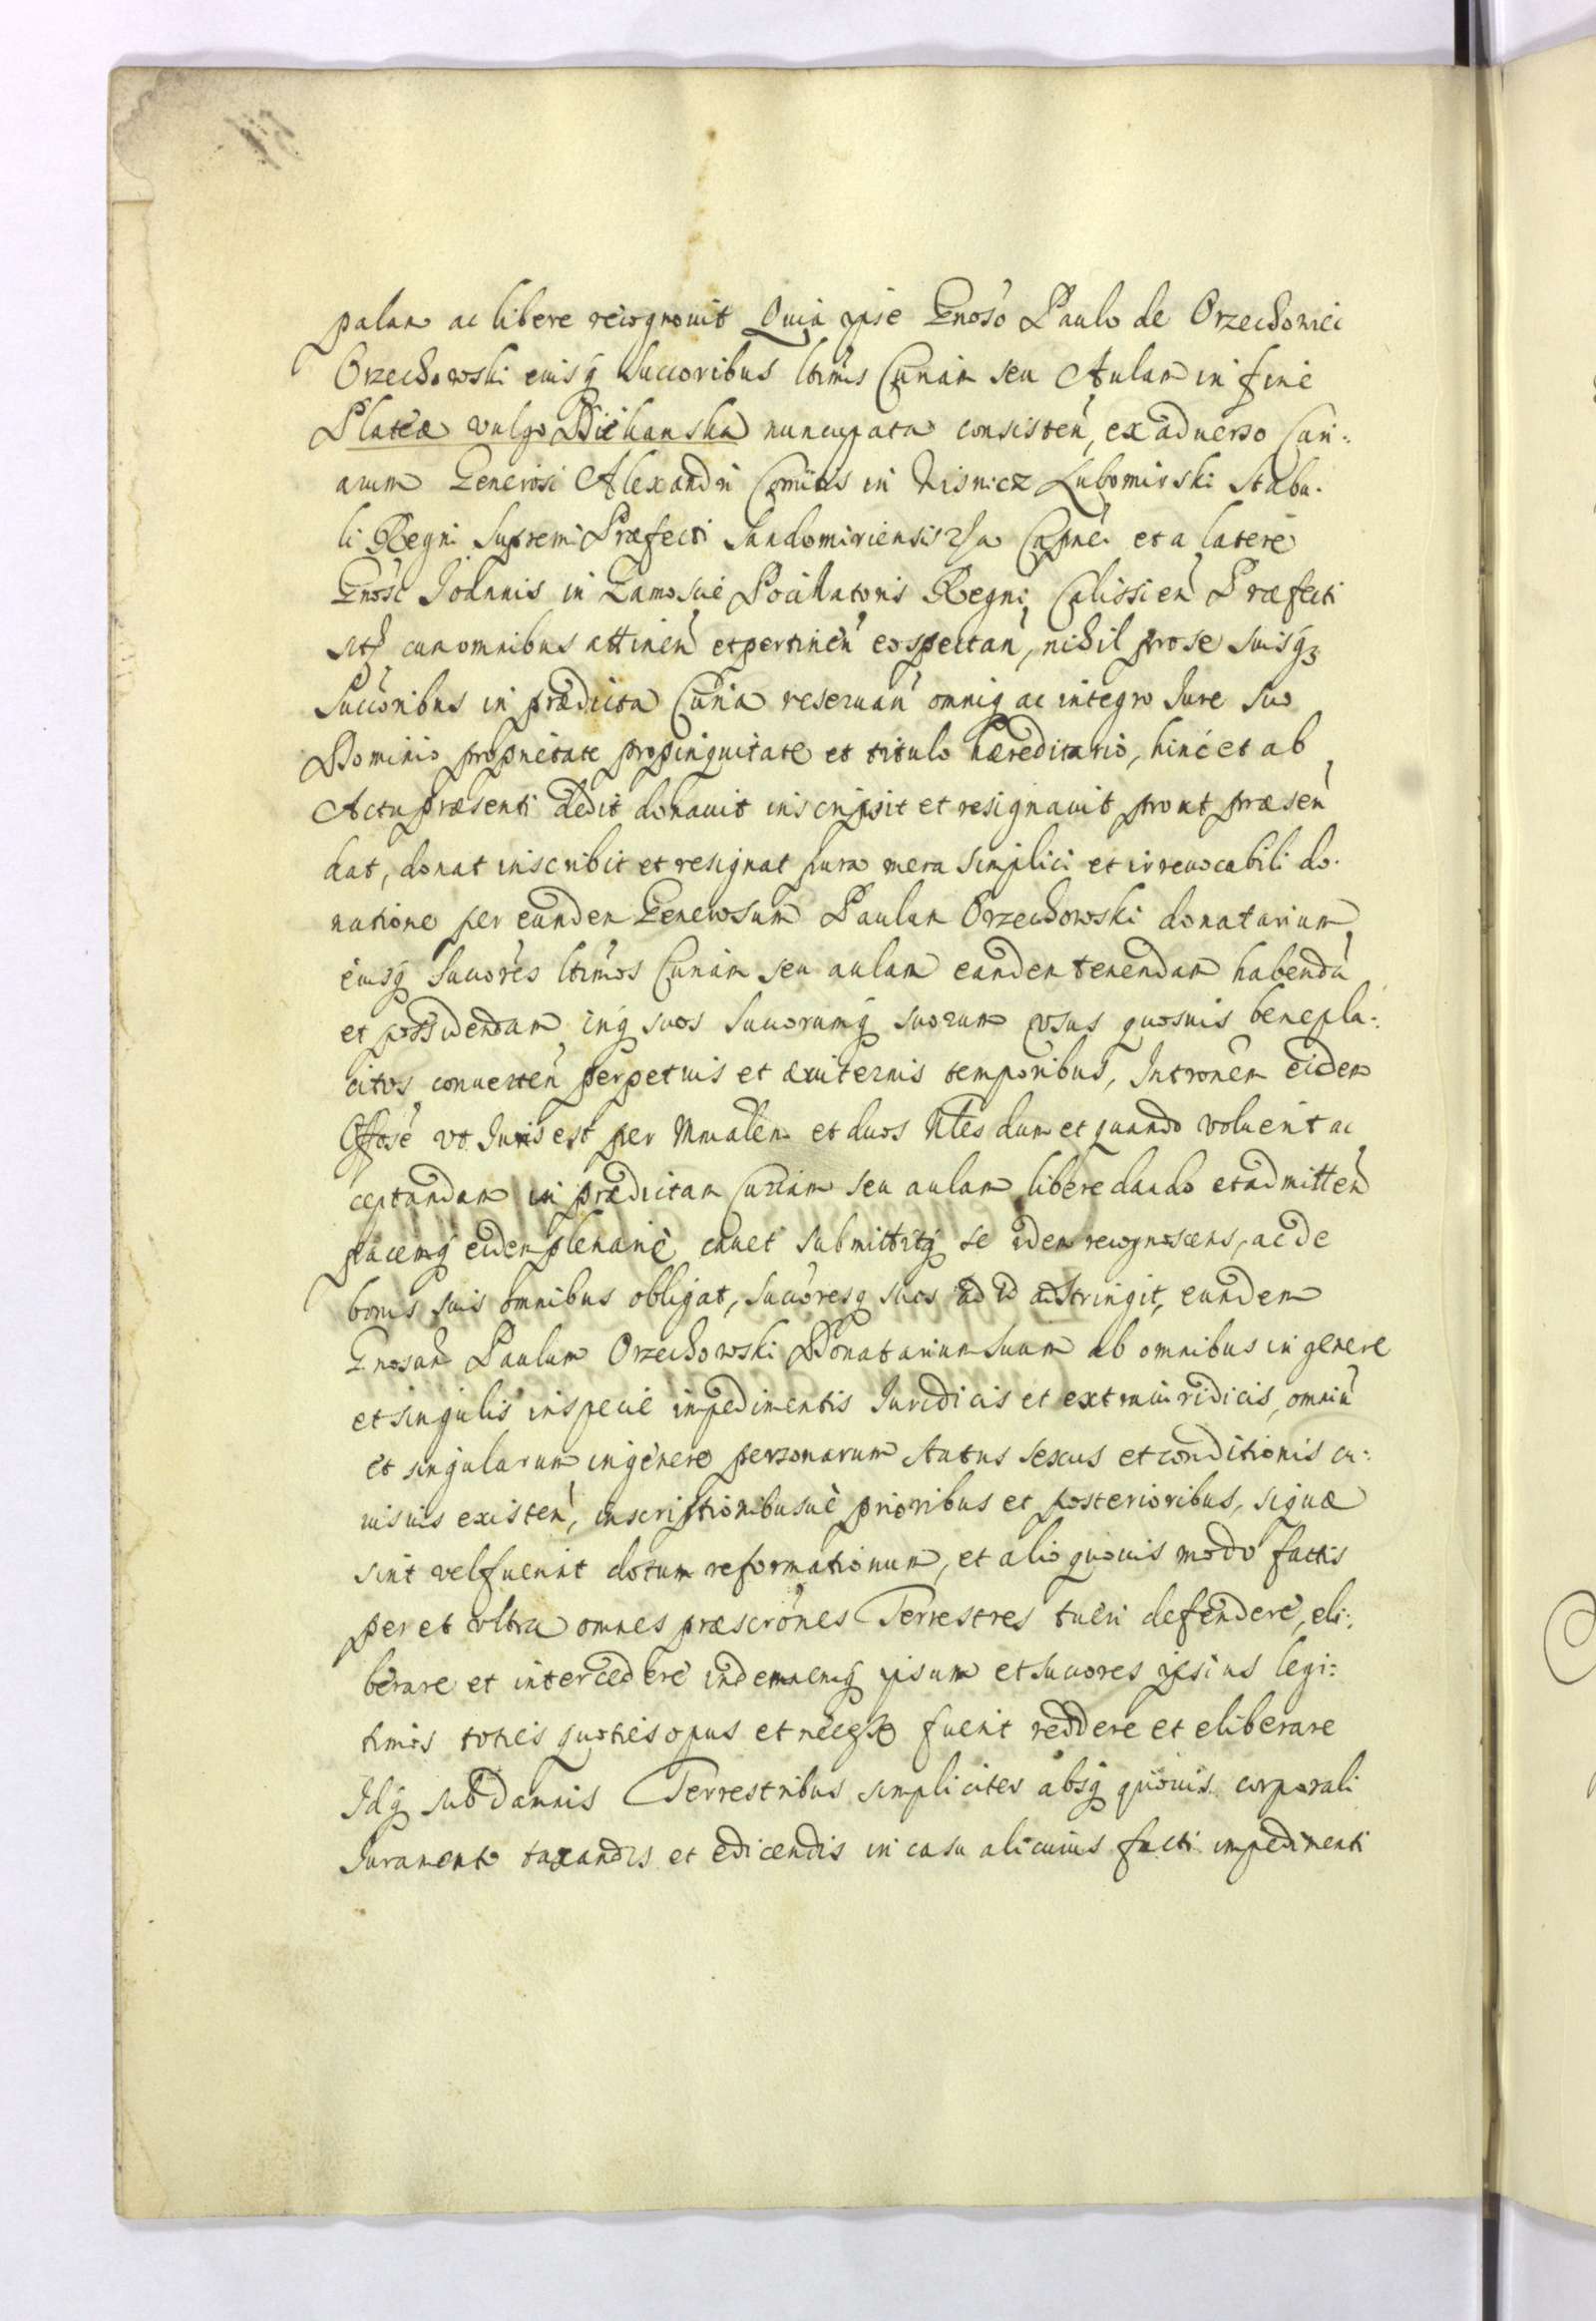 palam ac libere recognovit Quia ipse Gnoso Paulo de Orzechowiec
Orzechowski eiusq Succoribus ltimis Curiam seu Aulam in fine
Plateæ vulgo Dziekanska nuncupata consisten, ex adverso Curi:
arum Generosi Alexandri Comitis in Wisnicz Lubomirski Stabu:
li Regni Supremi Præfecti Sandomiriensis Capnei et a latere
Gnosi Johannis in Zamoscie Pocillatoris Regni Calissien Præfecti
cum omnibus attinen et pertinen eo spectan, nihil pro se suisq
Succoribus in prædicta Curia reservan omniq ac integro Jure suo
Dominio proprietate propinquitate et titulo hæreditario, hinc et ab
Actu præsenti dedit donauit inscripsit et resignauit prout præsen
dat, donat inscribit et resignat pura mera simplici et irreuocabili do:
natione per eundem Generosum Paulum Orzechowski donatarium
eiusq Succores ltimos Curiam seu aulam eandem tenendam habendã
et possidendam inq suos Succorumq suorum vsus quosuis benepla:
citos conuerten perpetuis et æuiternis temporibus, Intronem eidem
Offose vt Juris est per Mmalem et duos Nles dum et quando voluerit ac
ceptandam in prædictam Curiam seu aulam libere dando et admitten
pacemq eidem plenarie cauet submittitq se idem recognoscens, ac de
bonis suis omnibus obligat, Succoresq suos ad id adstringit, eundem
Gnosum Paulum Orzechowski Donatarium suum ab omnibus in genere
et singulis in specie impedimentis Juridicis et extraiuridicis, omniũ
et singularum in genere personarum status sexus et conditionis cu:
iusuis existen, inscriptionibusue prioribus et posterioribus, siquæ
sint vel fuerint dotum reformationum, et alio quouis modo factis
per et vltra omnes præscrones Terrestres tueri defendere, eli:
berare et intercedere indemnemq ipsum et Succores ipsius legi:
timos toties quoties opus et fuerit reddere et eliberare
Idq sub damnis Terrestribus simpliciter absq quouis corporali
Juramento taxandis et edicendis in casu alicuius facti impedimenti